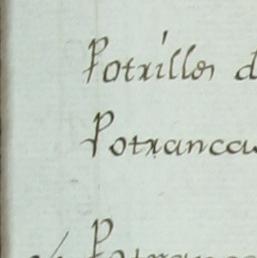 Potrillos d
Potrancas